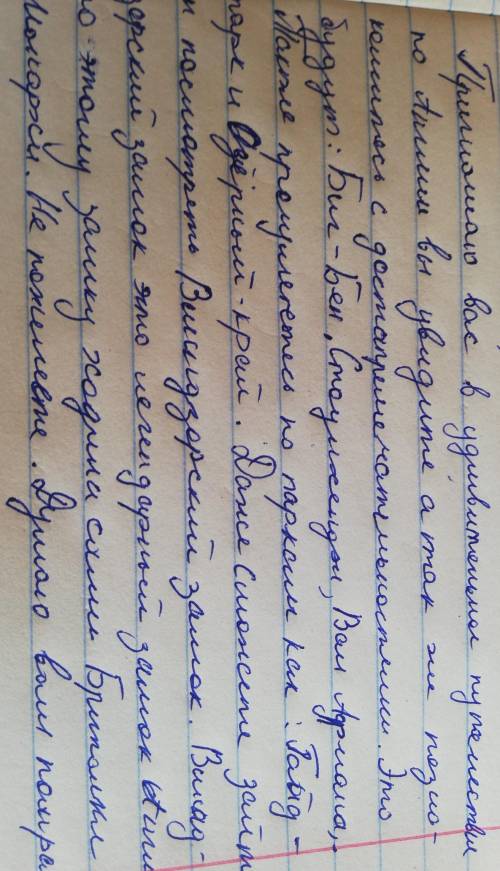 Приглошаю вас в удивительное путешествие
по Англии вы увидите а так же позно-
комитесь с достапремечательностями. Это
будут: Биг-Бен, Стоунхендж, Вал Адриана,
Позже прогуляетесь по паркам как: Гайд-
парк и Озёрный-край. Даже сможете зайт
и посмотреть Виндзорский замок. Винд-
зорский замок это легендарный замок Англ
по этому замку ходила сами Британкл
Монархи. Не пожелеете. Думаю вам понра